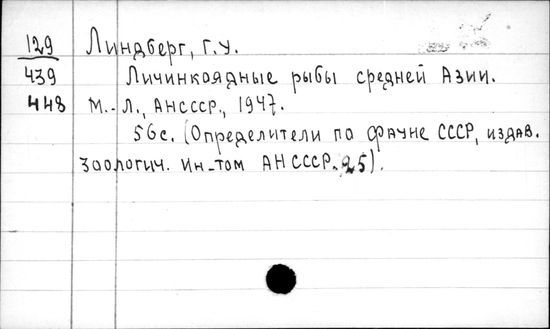 129 Линдберг, Г.У.
439 Личинкоядные рыбы средней Азии.
448 М.-Л., АНСССР., 1947.
56с. (Определители по фауне СССР, издав.
Зоологич. Ин-том АН СССР. 25).